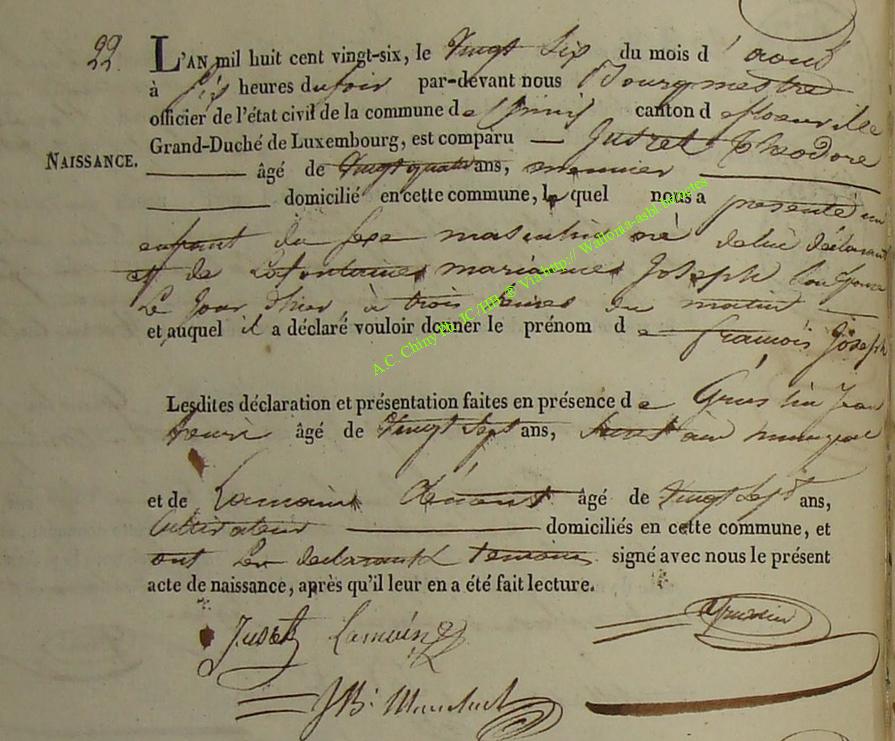 22. L'AN mil huit cent vingt-six, le vingt six du mois d'aout
à six heures du soir par-devant nous Bourgmestre
officier de l'état civil de la commune de Chiny canton de florenville
Grand-Duché de Luxembourg, est comparu Jusret théodore
NAISSANCE.
âgé de vingt quatre ans, menuier
domicilié en cette commune, lequel nous a presenté un
enfant du sexe masculin né de lui déclarant
et de Lafontaine marianne Joseph son épouse
Le Jour d'hier à trois heures du matin
et auquel il a déclaré vouloir donner le prénom de francois Joseph
Lesdites déclaration et présentation faites en présence de Jean
henri âgé de vingt sept ans,
et de Lamoine Clément âgé de vingt sept ans,
Cultivateur domiciliés en cette commune, et
ont Les declarant & temoins signé avec nous le présent
acte de naissance, après qu'il leur en a été fait lecture.
Jusret Lamoine
JB.
A.C. Chiny Ph JC /HB @ Via http:// Wallonia-asbl